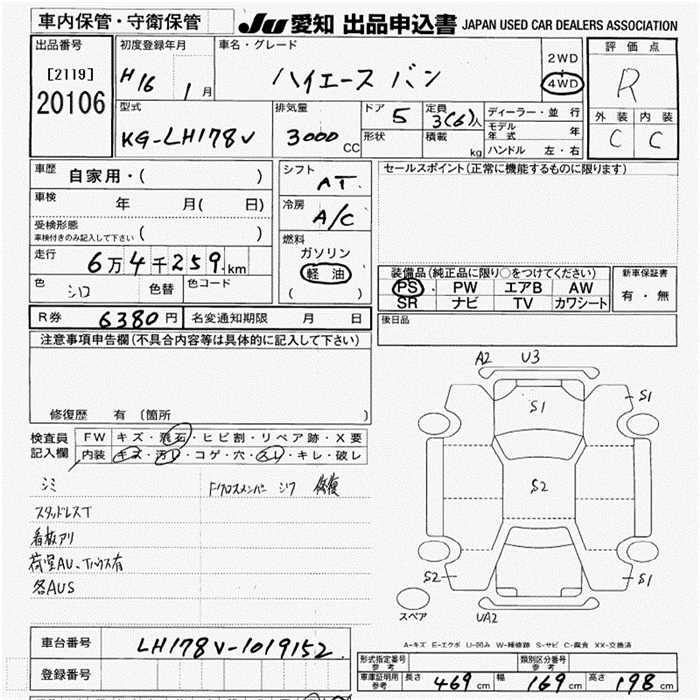 車内保管・守衛保管 JU 愛知 出品申込書 JAPAN USED CAR DEALERS ASSOCIATION
出品番号 [2119] 20106
初度登録年月 H16 1月
車名・グレード ハイエース バン
2WD 4WD
評価点 R
外装 内装
C C
型式 KG-LH178V
排気量 3000 CC
ドア 5 定員 3(6)人
形状 積載 kg
ディーラー・並行
モデル年式 年
ハンドル 左・右
車歴 自家用・( )
車検 年 月( 日)
受検形態 車検付きのみ記入して下さい ( )
走行 6万4千259km
色 シロ 色替 色コード
シフト AT
冷房 A/C
燃料 ガソリン
軽油
( )
セールスポイント(正常に機能するものに限ります)
装備品(純正品に限り○をつけてください)
PS PW エアB AW
SR ナビ TV カワシート
新車保証書
有・無
後日品
R券 6380円 名変通知期限 月 日
注意事項申告欄(不具合内容等は具体的に記入して下さい)
修復歴 有 〔箇所 〕
検査員記入欄
FW キズ・飛石・ヒビ割・リペア跡・X要
内装 キズ・汚レ・コゲ・穴・スレ・キレ・破レ
シミ
スタッドレスT
看板アリ
荷室AU、Tハウス有
各AUS
Fクロスメンバー シワ 修復
A2 U3
S1
S1
S2
S2 S1
UA2
スペア
A-キズ E-エクボ U-凹み W-補修跡 S-サビ C-腐食 XX-交換済
車台番号 LH178V-1019152
登録番号
形式指定番号 参考
類別区分番号 参考
車庫証明用 参考 長さ 469cm 幅 169cm 高さ 198cm